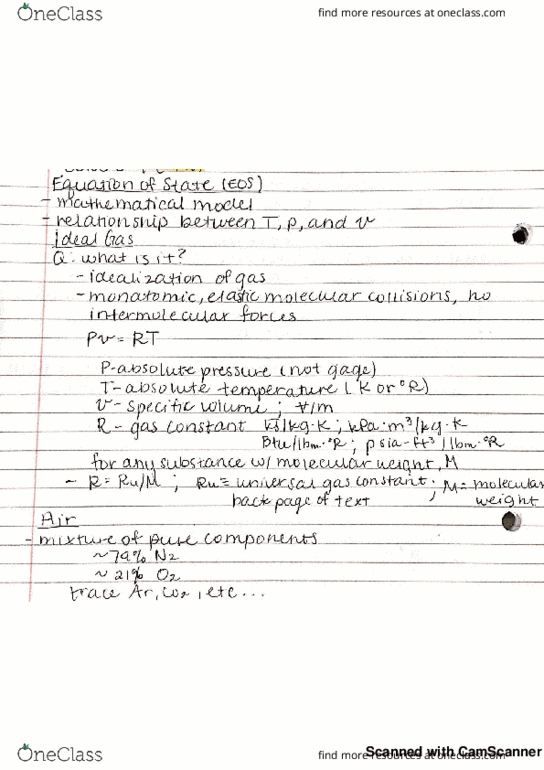 OneClass
find more resources at oneclass.com
Equation of State (EOS)
- mathematical model
- relationship between T, p, and v
Ideal Gas
Q: what is it?
- idealization of gas
- monatomic, elastic molecular collisions, no
intermolecular forces
Pv = RT
P - absolute pressure (not gage)
T - absolute temperature (K or °R)
v - specific volume ; V/m
R - gas constant kJ/kg·K ; kPa·m³/kg·K
Btu/lbm·°R ; psia-ft³/lbm·°R
for any substance w/ molecular weight, M
- R = Ru/M ; Ru = universal gas constant ; M = molecular
back page of text weight
Air
- mixture of pure components
~79% N2
~21% O2
trace Ar, CO2, etc...
OneClass
find more resources at oneclass.com
Scanned with CamScanner